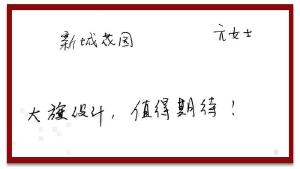 新城花园 亓女士
大旗设计，值得期待！